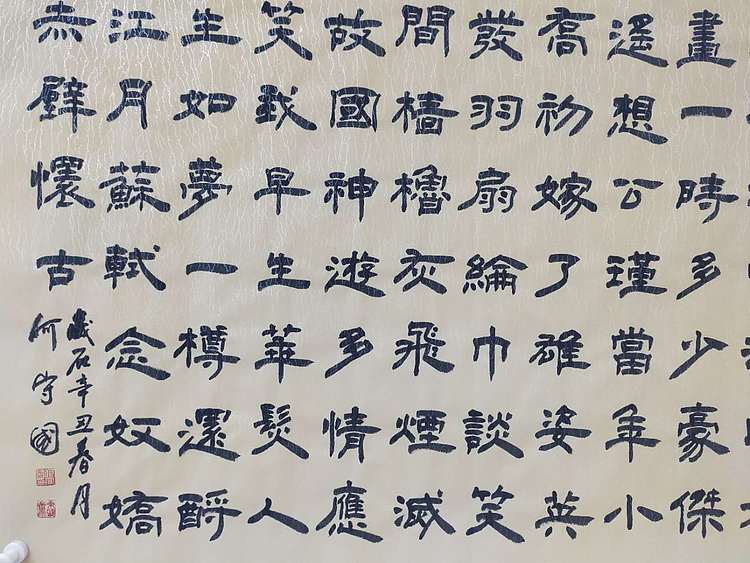 畫一時多少豪傑
遙想公瑾當年小
喬初嫁了雄姿英
發羽扇綸巾談笑
間檣櫓灰飛煙滅
故國神遊多情應
笑我早生華髮人
生如夢一樽還酹
江月蘇軾念奴嬌
赤壁懷古
歲在辛丑春月
何守國